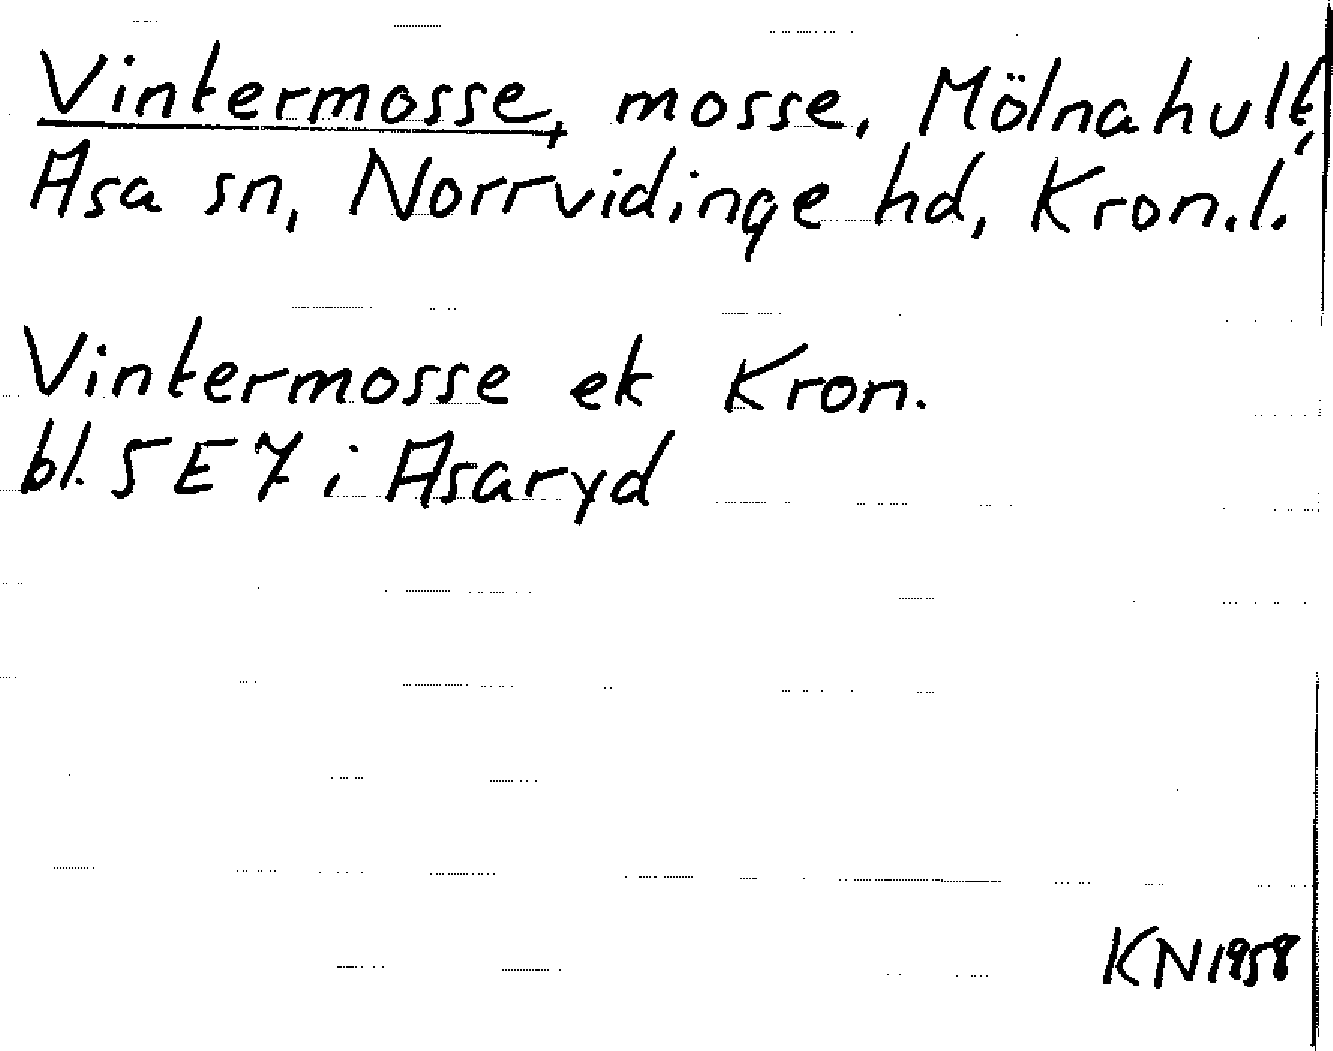 Vintermosse, mosse, Mölnahult,
Asa sn, Norrvidinge hd, Kron.l.
Vintermosse ek Kron.
bl. 5 E 7 i Asaryd
KN 1958